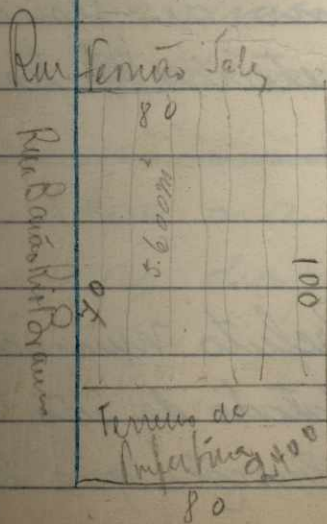 Rua Fernão Sales
80
5.600m²
Rua Barão Rio Branco
70
100
Terreno da
Prefeitura 2400
80